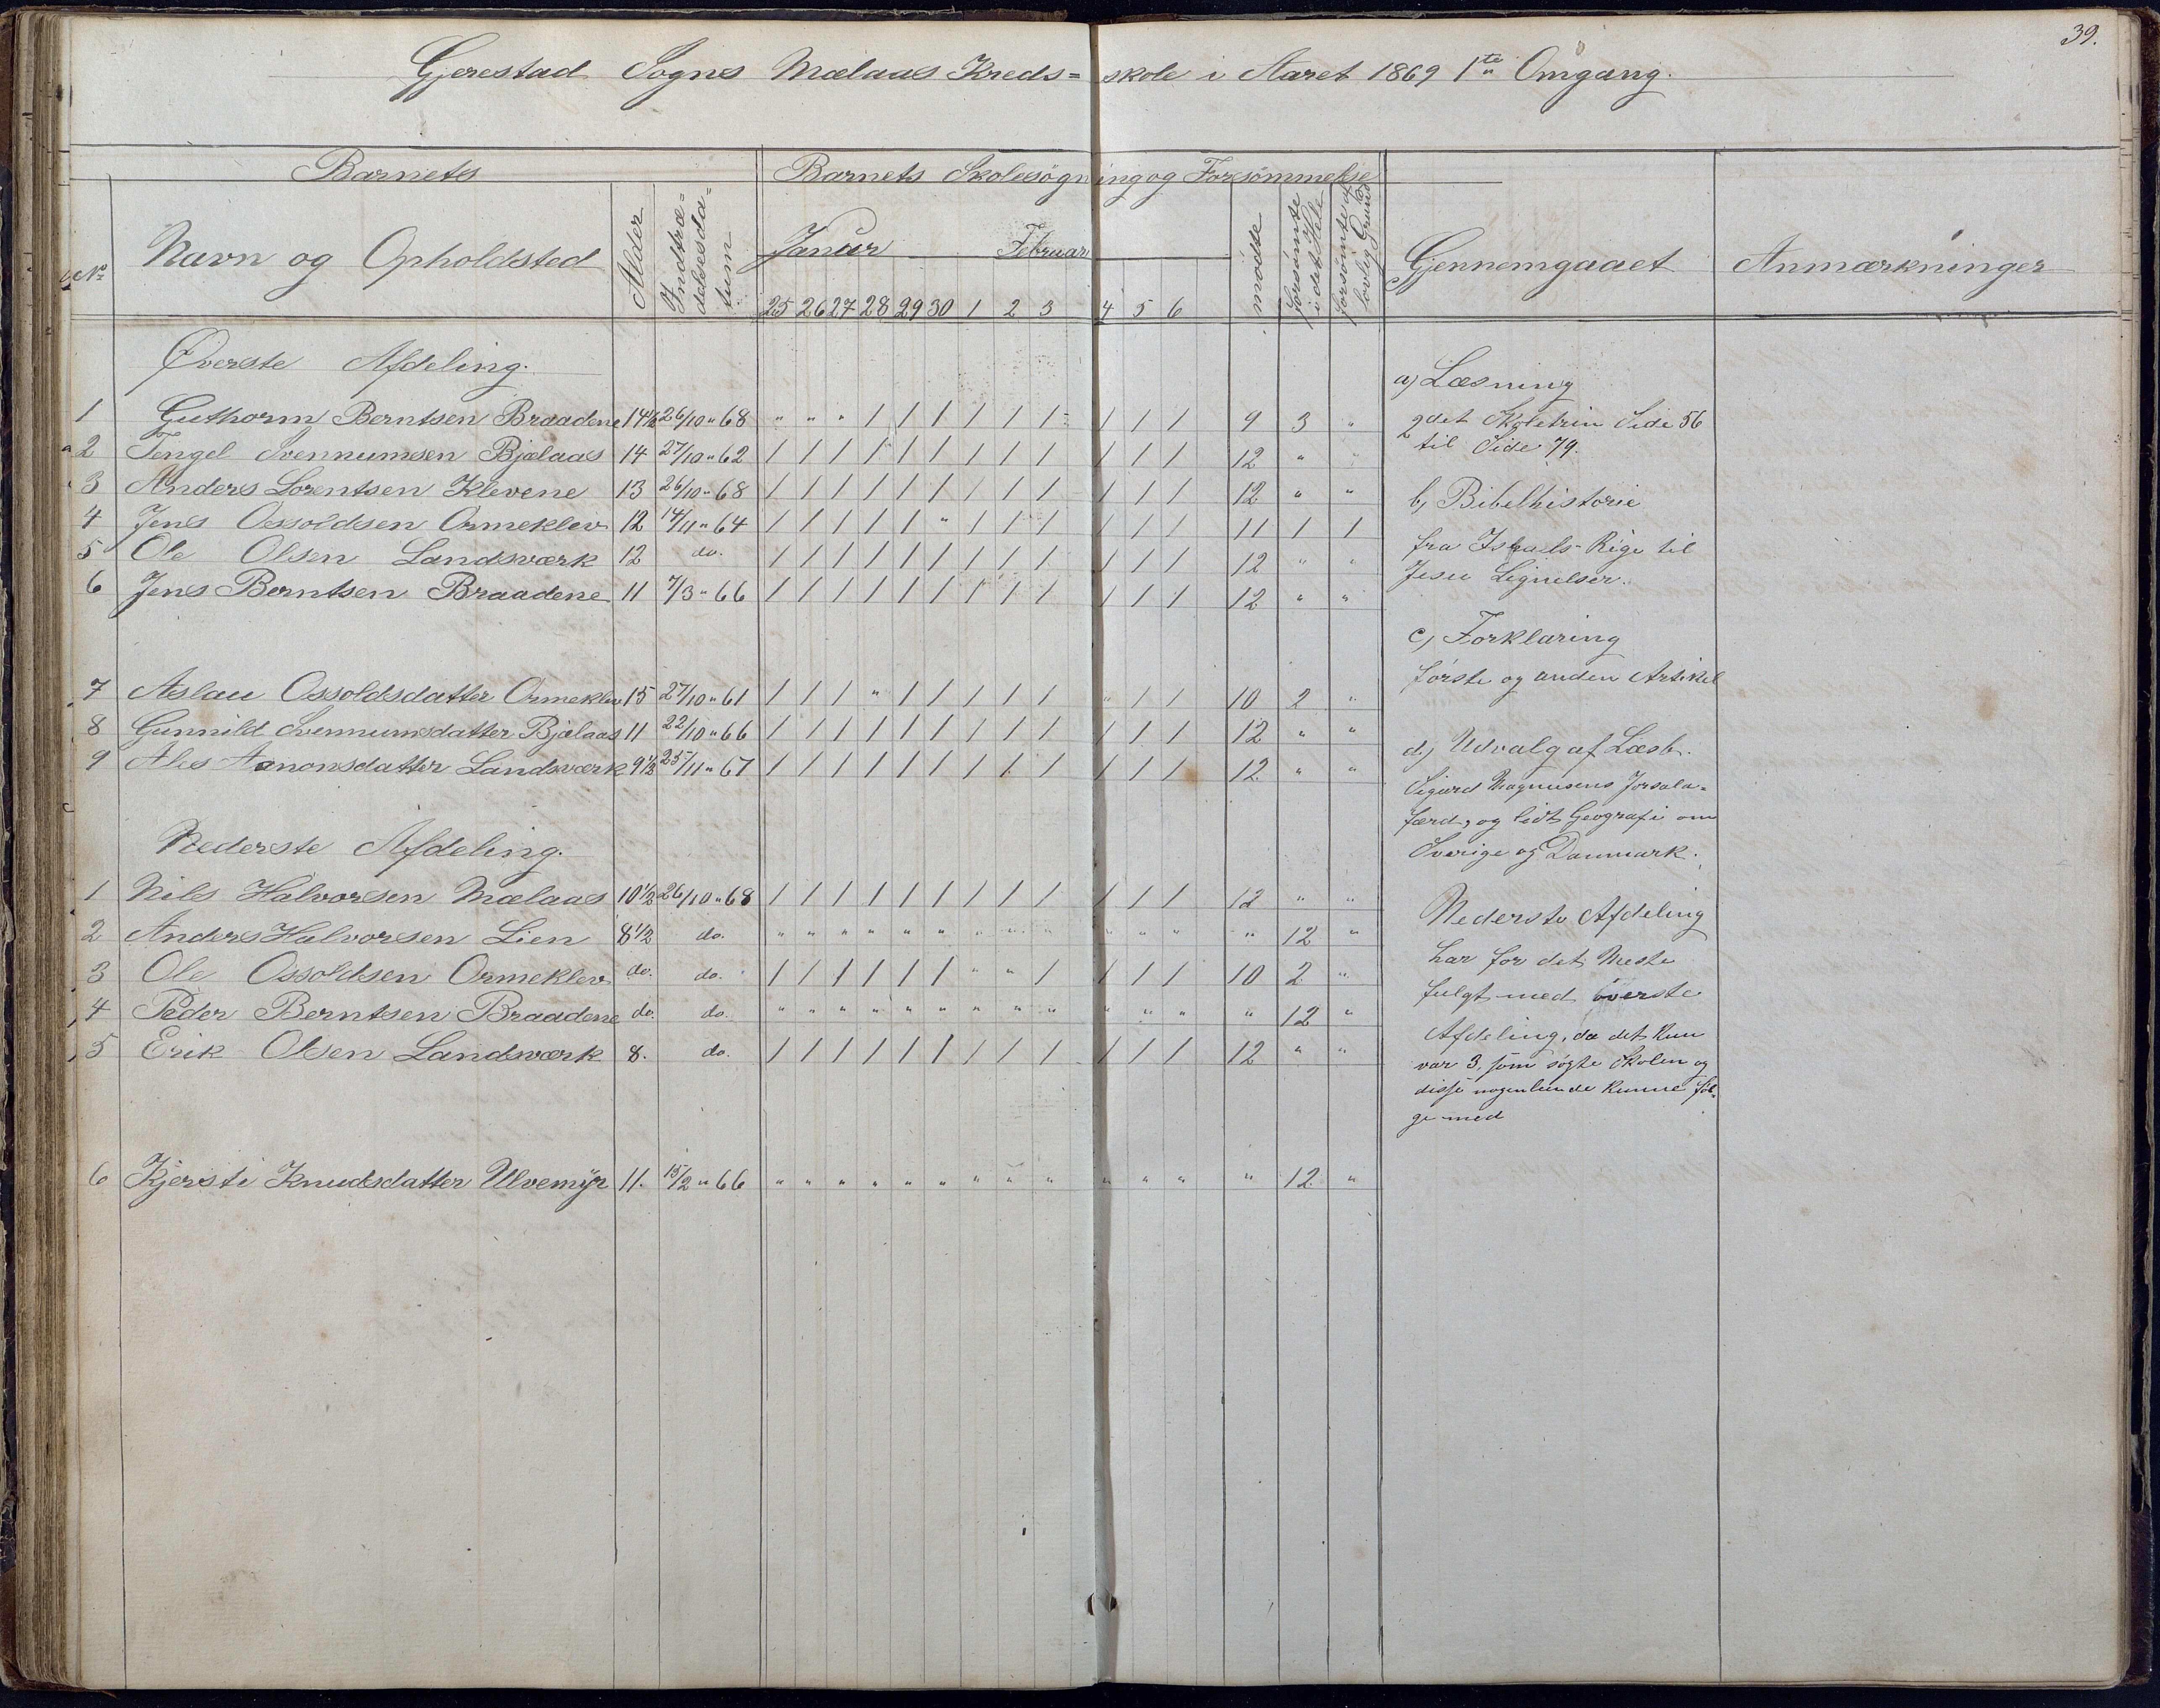 39.
Gjerestad Sogns Mælaas Kreds= skole i Aaret 1869 1ste Omgang.
Barnets
Barnets Skolesøgning og Forsømmelse
No
Navn og Opholdsted
Alder
Indtrædelsesdatum
Januar Februar
25 26 27 28 29 30 1 2 3 4 5 6
mødte
forsømte i det Hele
forsømte af lovlig Grund
Gjennemgaaet
Anmærkninger
Øverste Afdeling.
1 Guthorm Berntsen Braadene 14½ 26/10 " 68 " " " / / / / / / / / / 9 3 "
2 Tengel Svennumsen Bjælaas 14 27/10 " 62 / / / / / / / / / / / / 12 " "
3 Anders Lorentsen Klevene 13 26/10 " 68 / / / / / / / / / / / / 12 " "
4 Jens Ossoldsen Ormeklev 12 14/11 " 64 / / / / / " / / / / / / 11 1 1
5 Ole Olsen Landsværk 12 do. / / / / / / / / / / / / 12 " "
6 Jens Berntsen Braadene 11 7/3 " 66 / / / / / / / / / / / / 12 " "
7 Aslau Ossoldsdatter Ormeklev 15 27/10 " 61 / / / " / / / / / " / / 10 2 "
8 Gunnild Svennumsdatter Bjælaas 11 22/10 " 66 / / / / / / / / / / / / 12 " "
9 Ales Aanonsdatter Landsværk 9½ 25/11 " 67 / / / / / / / / / / / / 12 " "
Nederste Afdeling.
1 Nils Halvorsen Mælaas 10½ 26/10 " 68 / / / / / / / / / / / / 12 " "
2 Anders Halvorsen Lien 8½ do. " " " " " " " " " " " " " 12 "
3 Ole Ossoldsen Ormeklev do. do. / / / / / / " " / / / / 10 2 "
4 Peder Berntsen Braadene do. do. " " " " " " " " " " " " " 12 "
5 Erik Olsen Landsværk 8. do. / / / / / / / / / / / / 12 " "
6 Kjersti Knudsdatter Ulvemyr 11. 15/2 " 66 " " " " " " " " " " " " " 12 "
a) Læsning
2det Skoletrin Side 56
til Side 79.
b) Bibelhistorie
fra Israels-Rige til
Jesu Lignelser.
c) Forklaring
første og anden Artikel
d) Udvalg af Læsb.
Sigurd Magnusens Jorsala=
færd, og lidt Geografi om
Sverige og Danmark.
Nederste Afdeling
har for det Meste
fulgt med øverste
Afdeling, da det kun
var 3, som søgte Skolen og
disse nogenlunde kunne føl=
ge med